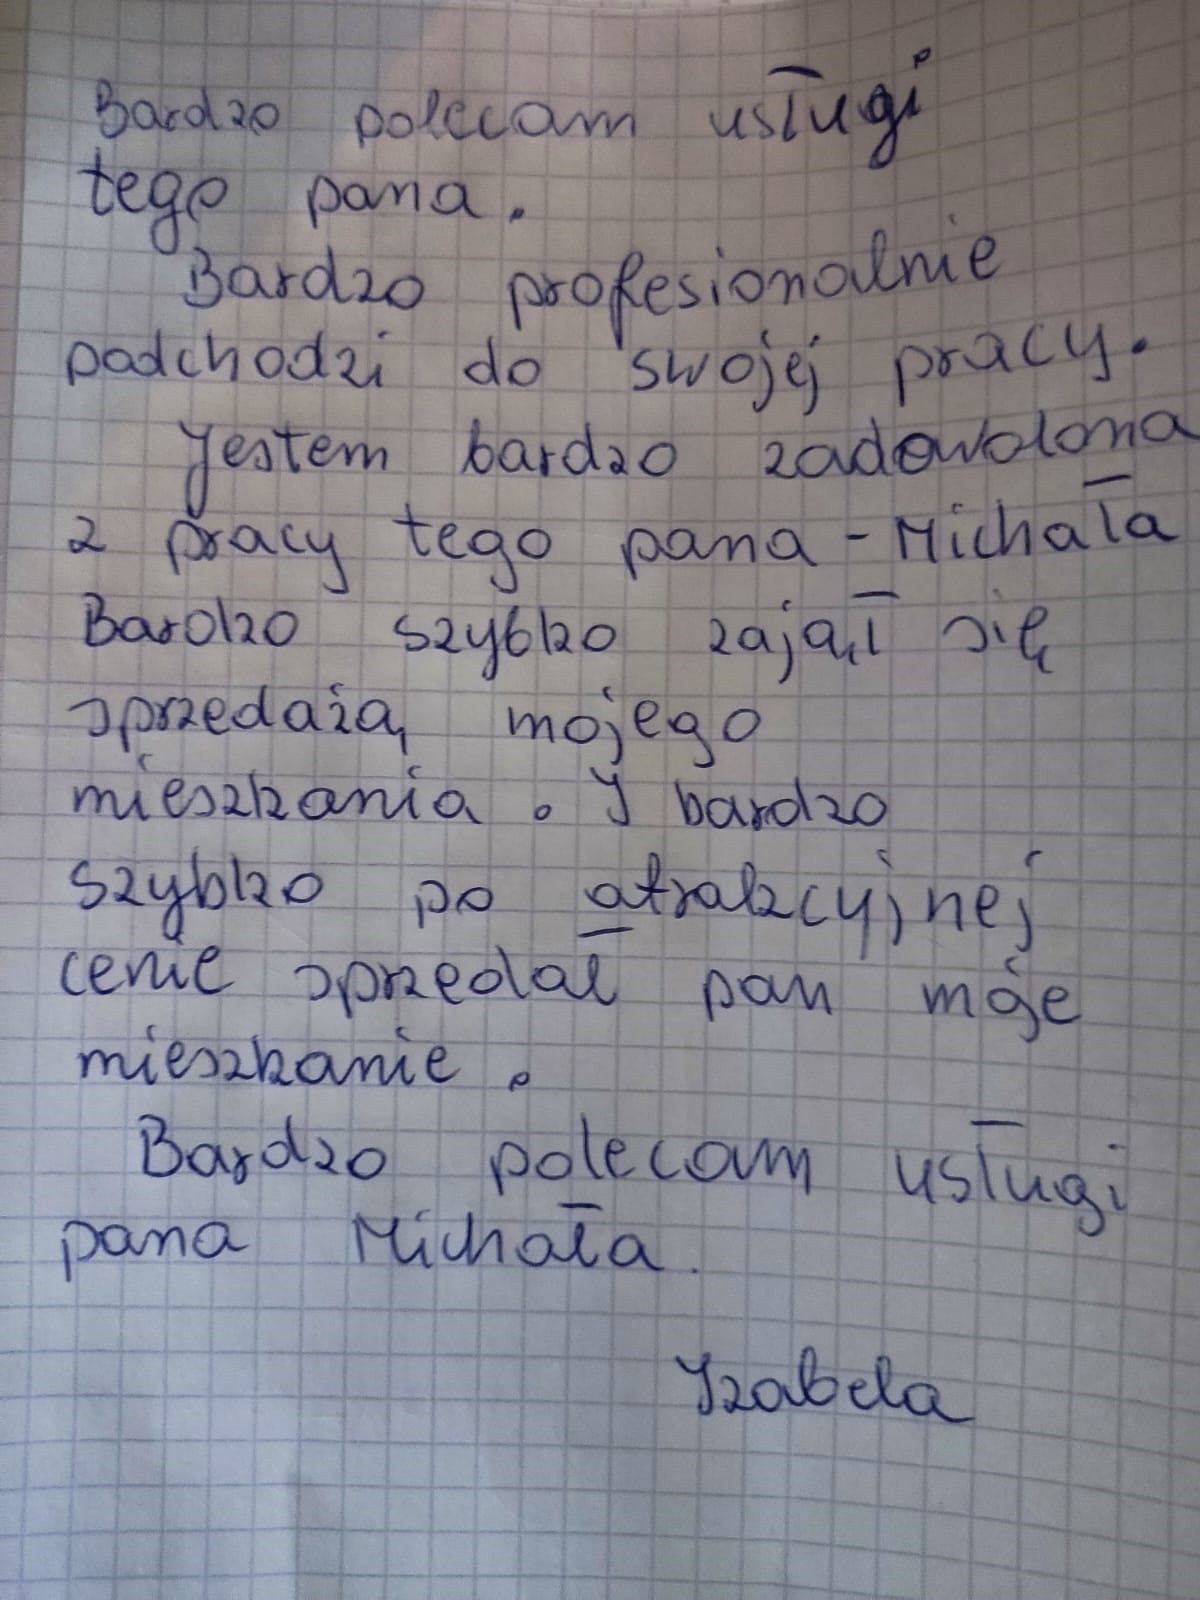 Bardzo polecam usługi
tego pana.
Bardzo profesionalnie
padchodzi do swojej pracy.
Jestem bardzo zadowolona
z pracy tego pana - Michała
Bardzo szybko zajął się
sprzedażą mojego
mieszkania. I bardzo
szybko po atrakcyjnej
cenie sprzedał pan moje
mieszkanie.
Bardzo polecam usługi
pana Michała.
Izabela